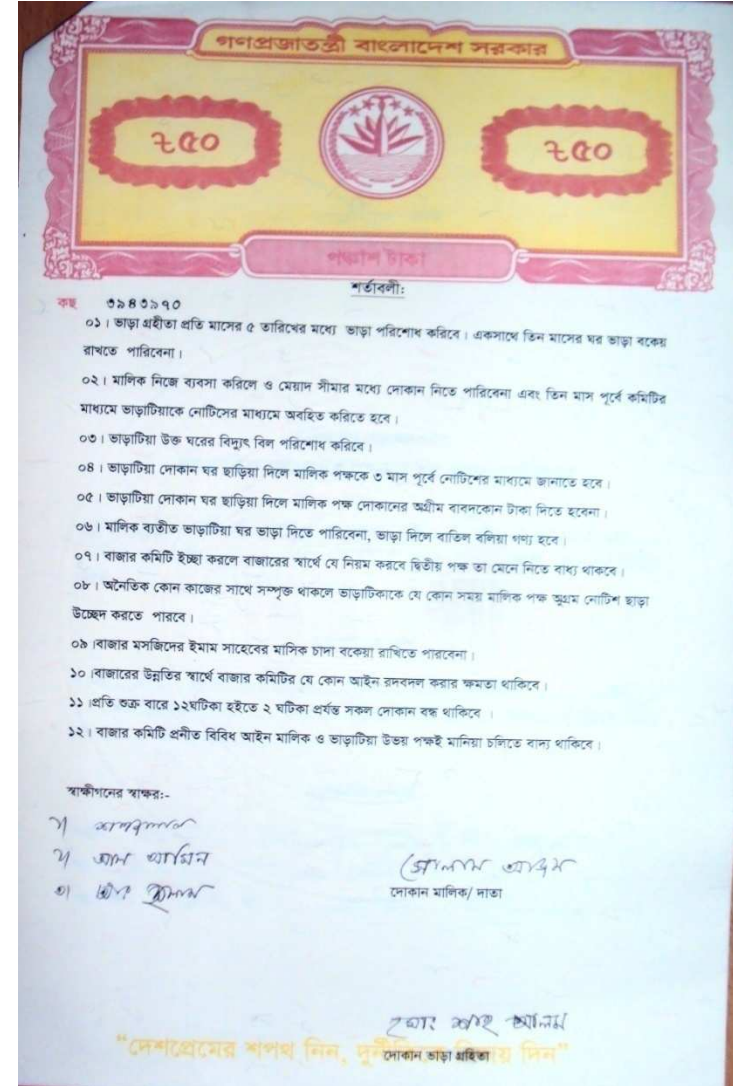 গণপ্রজাতন্ত্রী বাংলাদেশ সরকার
৳৫০ ৳৫০
পঞ্চাশ টাকা
শর্তাবলী:
কছ ৩৯৪৩৯৭০
০১। ভাড়া গ্রহীতা প্রতি মাসের ৫ তারিখের মধ্যে ভাড়া পরিশোধ করিবে। একসাথে তিন মাসের ঘর ভাড়া বকেয়া
রাখতে পারিবেনা।
০২। মালিক নিজে ব্যবসা করিলে ও মেয়াদ সীমার মধ্যে দোকান নিতে পারিবেনা এবং তিন মাস পূর্বে কমিটির
মাধ্যমে ভাড়াটিয়াকে নোটিসের মাধ্যমে অবহিত করিতে হবে।
০৩। ভাড়াটিয়া উক্ত ঘরের বিদ্যুৎ বিল পরিশোধ করিবে।
০৪। ভাড়াটিয়া দোকান ঘর ছাড়িয়া দিলে মালিক পক্ষকে ৩ মাস পূর্বে নোটিশের মাধ্যমে জানাতে হবে।
০৫। ভাড়াটিয়া দোকান ঘর ছাড়িয়া দিলে মালিক পক্ষ দোকানের অগ্রীম বাবদকোন টাকা দিতে হবেনা।
০৬। মালিক ব্যতীত ভাড়াটিয়া ঘর ভাড়া দিতে পারিবেনা, ভাড়া দিলে বাতিল বলিয়া গণ্য হবে।
০৭। বাজার কমিটি ইচ্ছা করলে বাজারের স্বার্থে যে নিয়ম করবে দ্বিতীয় পক্ষ তা মেনে নিতে বাধ্য থাকবে।
০৮। অনৈতিক কোন কাজের সাথে সম্পৃক্ত থাকলে ভাড়াটিকাকে যে কোন সময় মালিক পক্ষ অগ্রম নোটিশ ছাড়া
উচ্ছেদ করতে পারবে।
০৯।বাজার মসজিদের ইমাম সাহেবের মাসিক চাদা বকেয়া রাখিতে পারবেনা।
১০।বাজারের উন্নতির স্বার্থে বাজার কমিটির যে কোন আইন রদবদল করার ক্ষমতা থাকিবে।
১১।প্রতি শুক্র বারে ১২ঘটিকা হইতে ২ ঘটিকা প্রর্যন্ত সকল দোকান বন্ধ থাকিবে ।
১২। বাজার কমিটি প্রনীত বিবিধ আইন মালিক ও ভাড়াটিয়া উভয় পক্ষই মানিয়া চলিতে বাদ্য থাকিবে।
স্বাক্ষীগনের স্বাক্ষর:-
১।
২। আল আমিন
৩।
গোলাম আজম
দোকান মালিক/ দাতা
মোঃ শাহ আলম
দোকান ভাড়া গ্রহিতা
"দেশপ্রেমের শপথ নিন, দুর্নীতিকে বিদায় দিন"